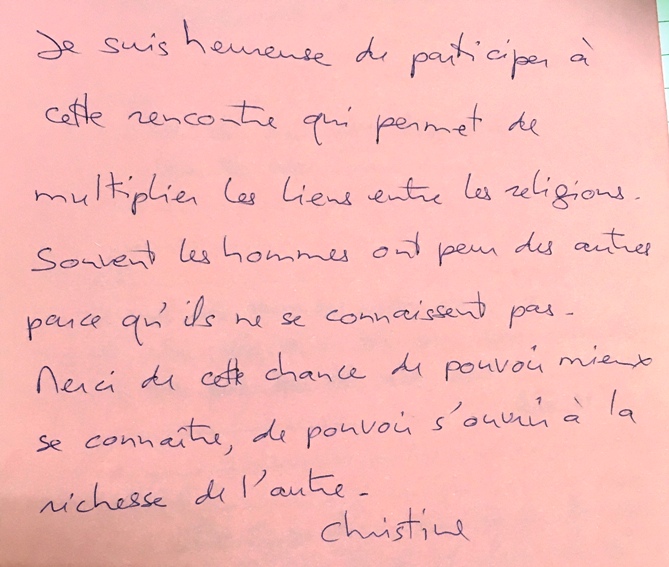 Je suis heureuse de participer à
cette rencontre qui permet de
multiplier les liens entre les religions.
Souvent les hommes ont peur des autres
parce qu'ils ne se connaissent pas.
Merci de cette chance de pouvoir mieux
se connaître, de pouvoir s'ouvrir à la
richesse de l'autre.
Christine